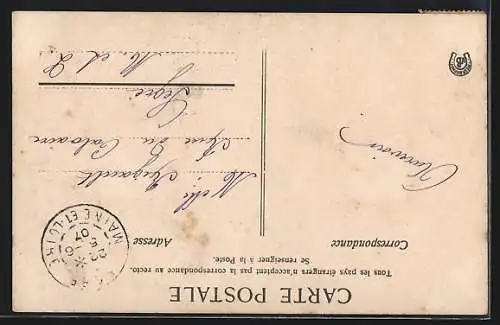 CARTE POSTALE
Tous les pays étrangers n'acceptent pas la correspondance au recto.
Se renseigner à la Poste.
Correspondance
Adresse
Aurevoir
Melle Rigault
Rue du Calvaire
Segré
M et L
MAINE-ET-LOIRE
22-6
5
07